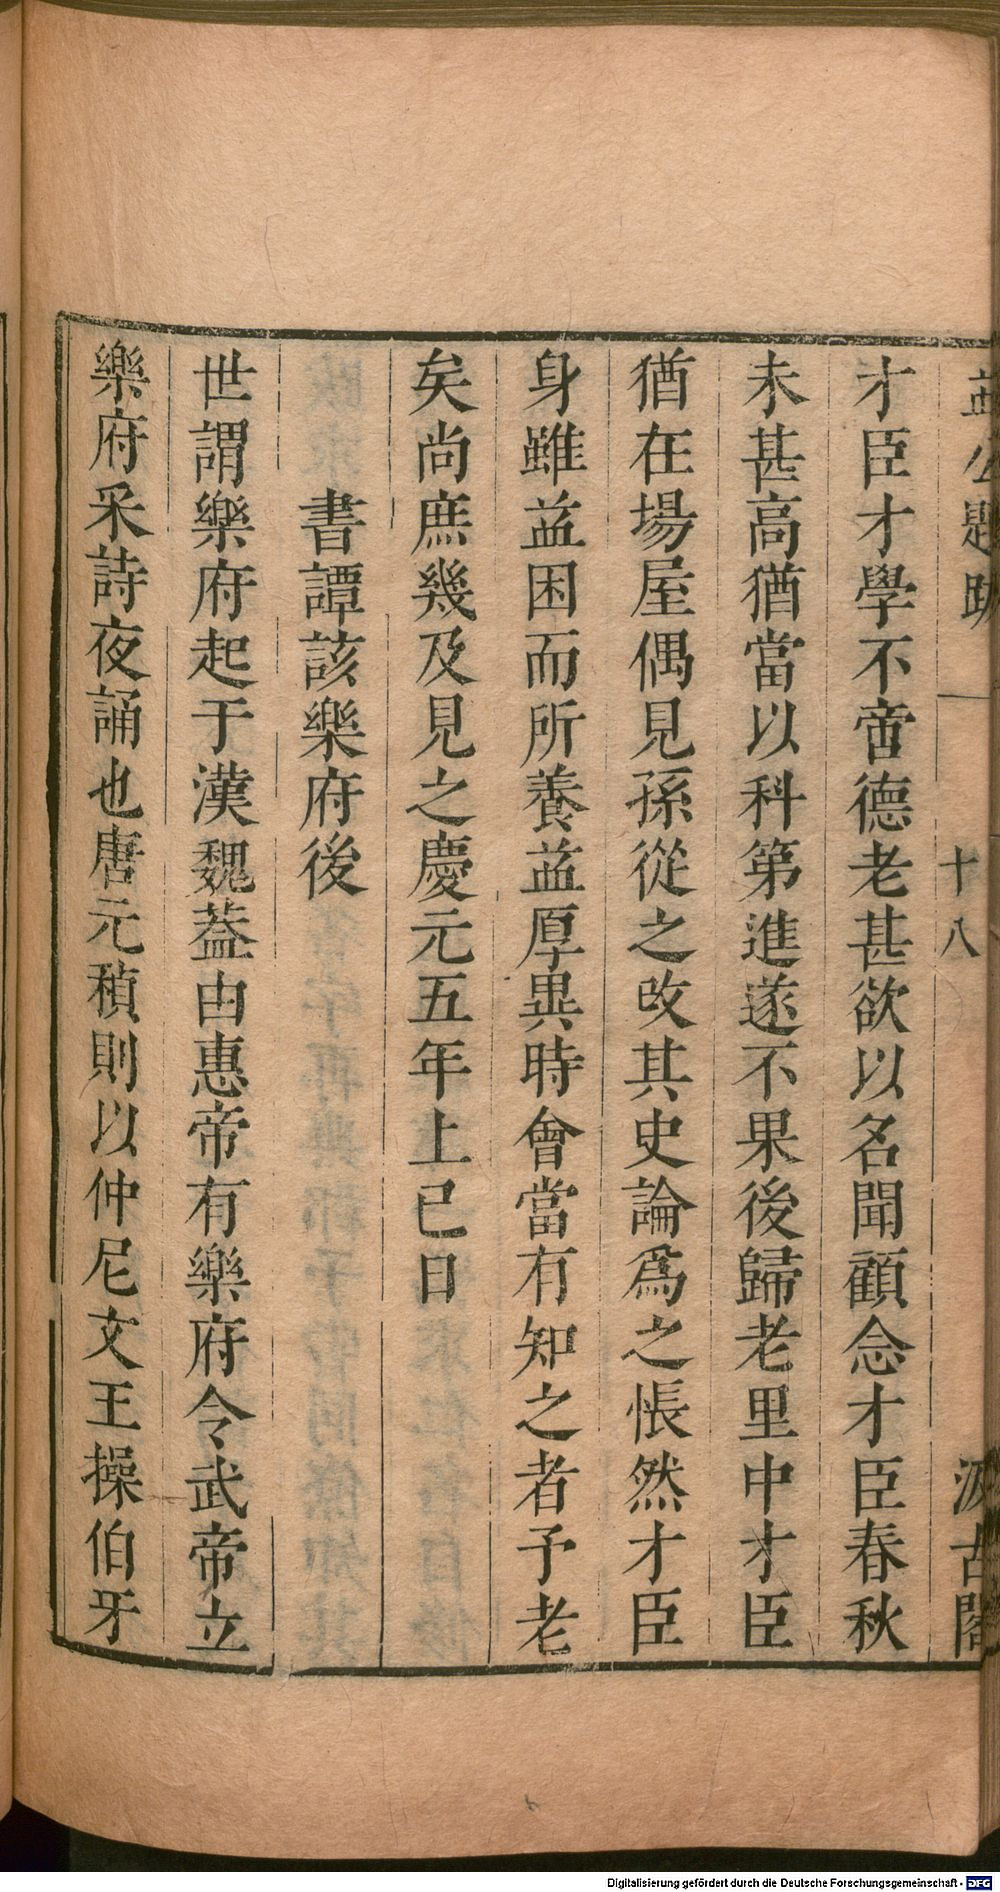 益公題跋 十八 汲古閣
才臣才學不啻德老甚欲以名聞顧念才臣春秋
未甚高猶當以科第進遂不果後歸老里中才臣
猶在場屋偶見孫從之攺其史論爲之悵然才臣
身雖益困而所養益厚異時會當有知之者予老
矣尚庶幾及見之慶元五年上巳日
書譚該樂府後
世謂樂府起于漢魏葢由惠帝有樂府令武帝立
樂府采詩夜誦也唐元稹則以仲尼文王操伯牙
Digitalisierung gefördert durch die Deutsche Forschungsgemeinschaft - DFG